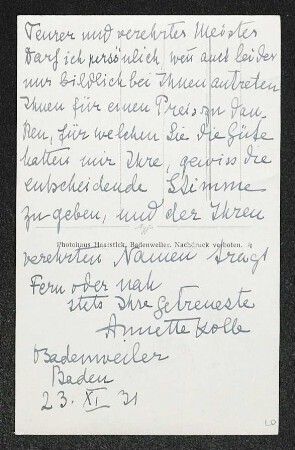 Teurer und verehrter Meister
Darf ich persönlich, wenn auch leider
nur bildlich bei Ihnen antreten
Ihnen für einen Preis zu dan-
ken, für welchen Sie die Güte
hatten mir Ihre, gewiss die
entscheidende Stimme
zu geben, und der Ihren
Photohaus Haarstick, Badenweiler. Nachdruck verboten.
verehrten Namen traegt
Fern oder nah
stets Ihre getreueste
Annette Kolb
Badenweiler
Baden
23. XI 31